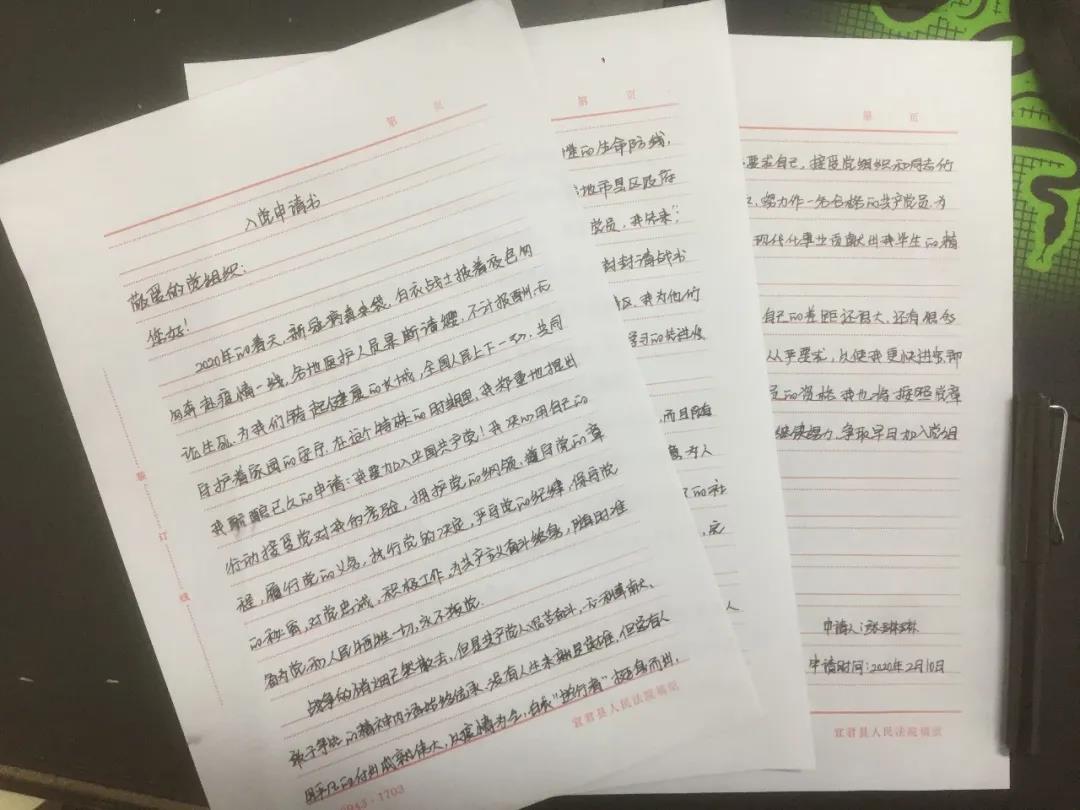 第 页
入党申请书
敬爱的党组织:
您好!
2020年的春天,新冠病毒来袭,白衣战士披着夜色匆
匆奔赴疫情一线,各地医护人员果断请缨,不计报酬,无
论生死,为我们铸起健康的长城,全国人民上下一心,共同
守护着家园的安宁.在这个特殊的时期里,我郑重地提出
我酝酿已久的申请:我要加入中国共产党!我决心用自己的
行动接受党对我的考验,拥护党的纲领,遵守党的章
程,履行党的义务,执行党的决定,严守党的纪律,保守党
的秘密,对党忠诚,积极工作,为共产主义奋斗终身,随时准
备为党和人民牺牲一切,永不叛党.
战争的硝烟已然散去,但是共产党人艰苦奋斗,无私奉献、
敢于牺牲的精神内涵始终传承.没有人生来就是英雄,但总有人
用平凡的付出成就伟大,从疫情为令,自我"逆行者"挺身而出,
宜君县人民法院稿纸
装
订
线
第 页
的生命防线,
地市县区政府
党员,我先来",
封封请战书
区,我为他们
而且随
为人
的社
人
第 页
要求自己,接受党组织和同志们
努力作一名合格的共产党员,为
现代化事业贡献出我毕生的精
自己的差距还很大,还有很多
从严要求,以使我更快进步,即
员的资格,我也将按照党章
继续努力,争取早日加入党组
申请人:
申请时间:2020年2月10日
宜君县人民法院稿纸